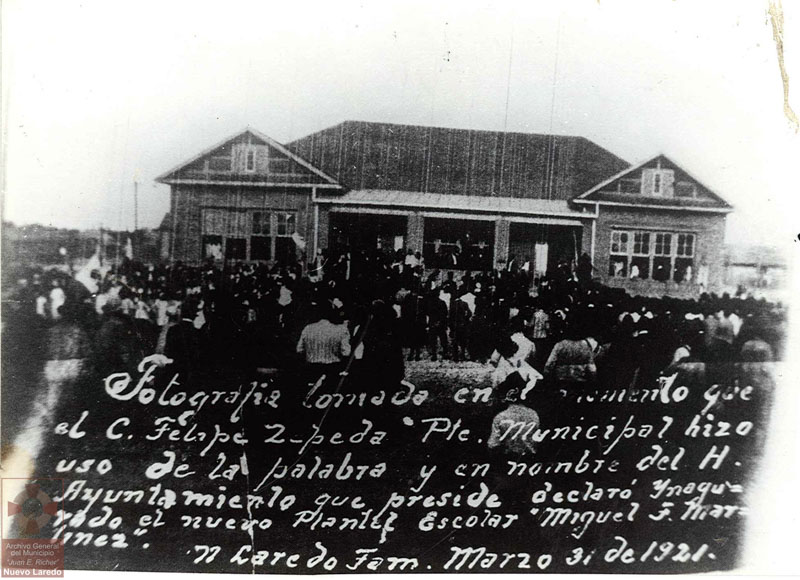 Fotografia tomada en el momento que
el C. Felipe Zepeda "Pte. Municipal hizo
uso de la palabra y en nombre del H.
Ayuntamiento que preside declaró Ynagu=
rado el nuevo Plantel Escolar "Miguel F. Mar=
tinez".
N Laredo Tam. Marzo 31 de 1921.
Archivo General
del Municipio
"Juan E. Richer"
Nuevo Laredo